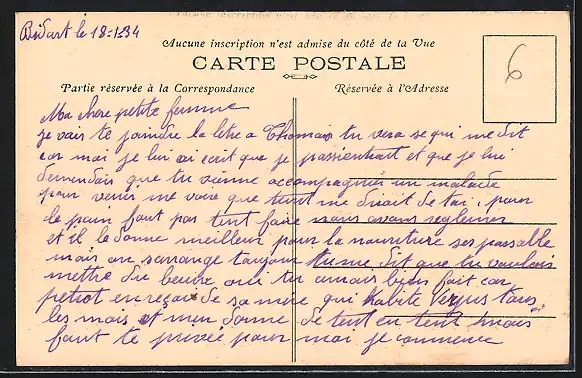 Bidart le 18-1234
Aucune inscription n'est admise du côté de la Vue
CARTE POSTALE
Partie réservée à la Correspondance
Réservée à l'Adresse
6
Ma chere petite femme
je vais te joindre la letre a Thomas tu vera se qui me dit
car moi je lui ai ecrit que je et que je lui
demendais que tu vienne accompagnier un malade
pour venir me voire que tent me de toi, pour
le pain faut pas tent faire nous avons
et il le donne meilleur pour la nouriture ses passable
mais on sarrange toujour tume dit que tu voulais
mettre du beure oui tu bien fait car
petiot en reçois de sa mere qui habite tous
les mois et men donne de tent en tent mais
faut te privée pour moi je commence